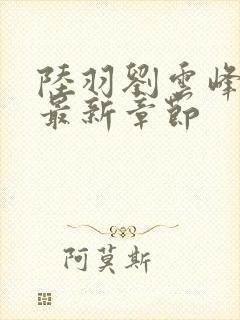 陸羽劉雲峰
最新章節
阿莫斯